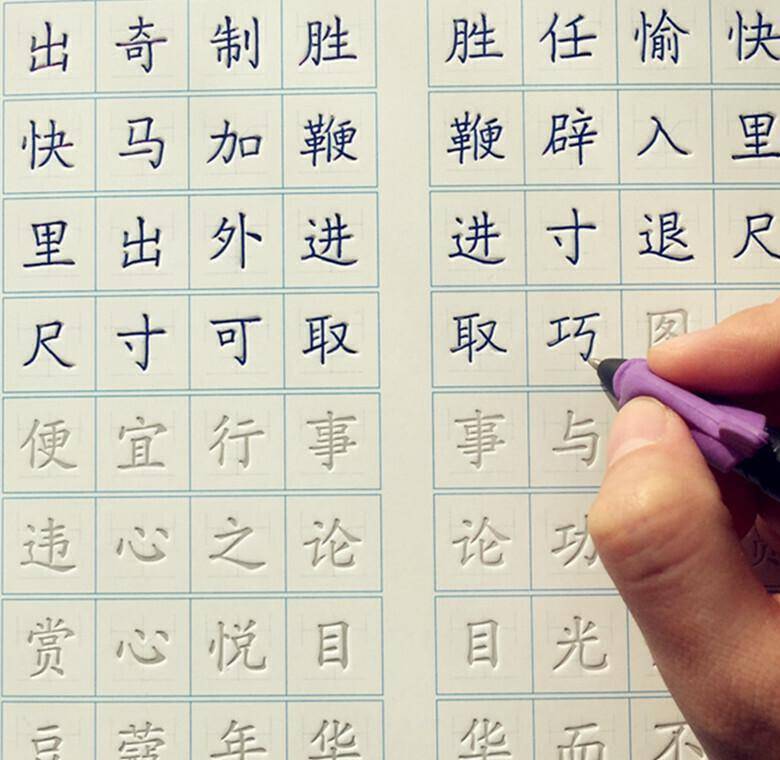 出奇制胜 胜任愉快
快马加鞭 鞭辟入里
里出外进 进寸退尺
尺寸可取 取巧图
便宜行事 事与
违心之论 论功
赏心悦目 目光
豆蔻年华 华而不